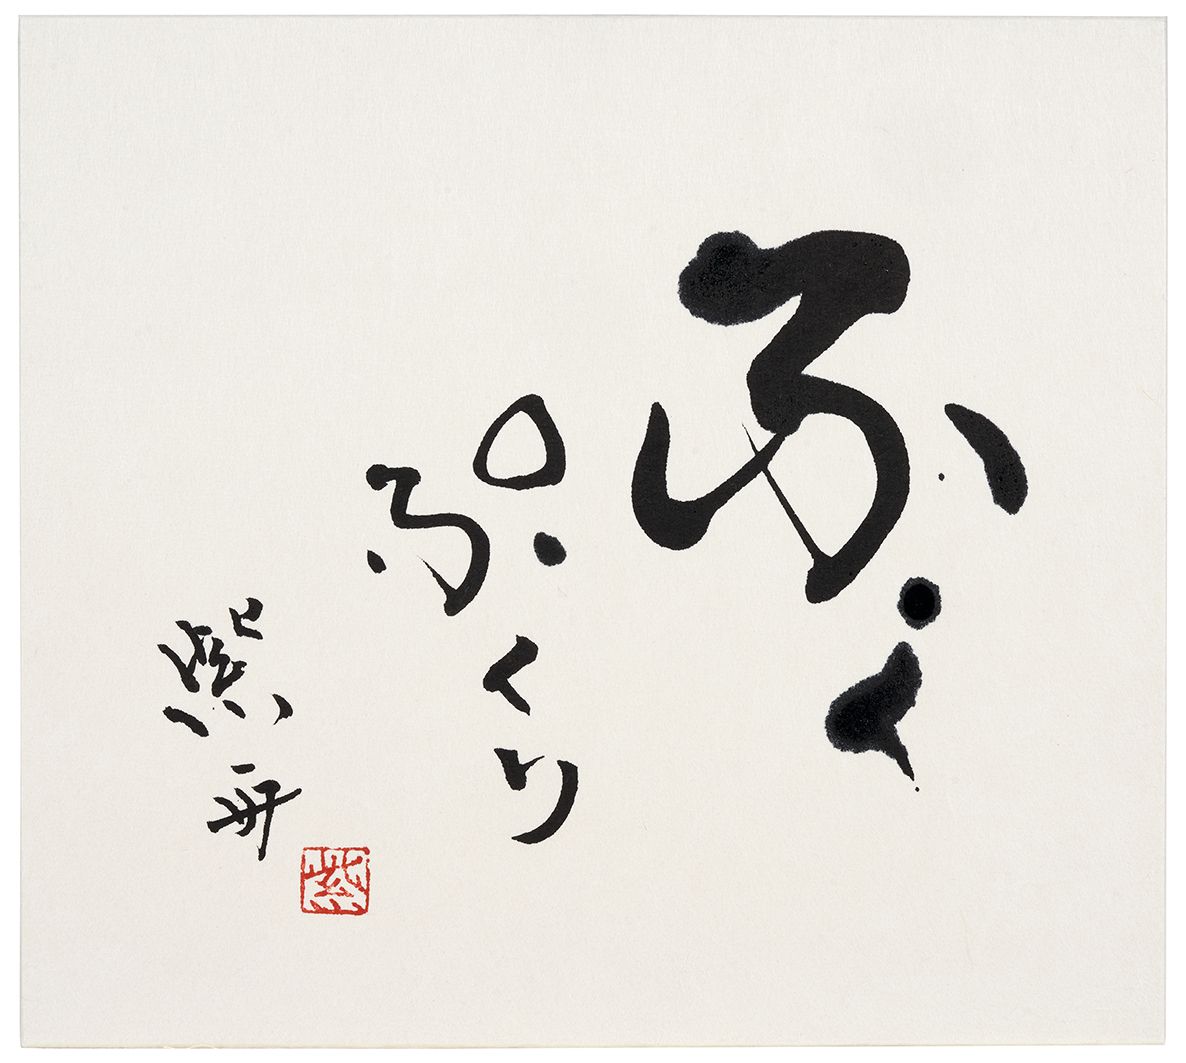 ふく
ぷくり
紫舟